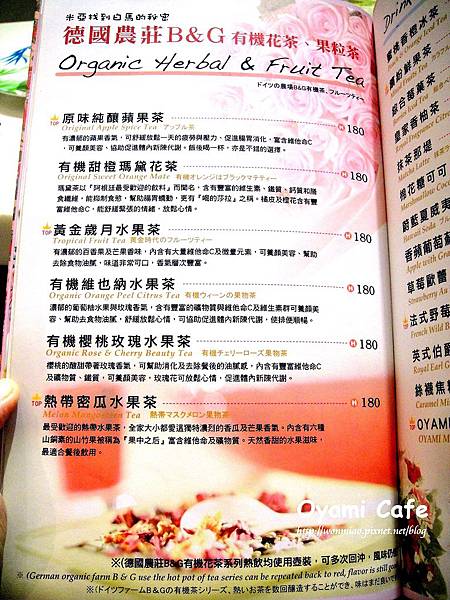 米亞找到白馬的秘密
德國農莊B&G有機花茶、果粒茶
Organic Herbal & Fruit Tea
ドイツの農場B&G有機茶、フルーツティー
TOP 原味純釀蘋果茶 H 180
Original Apple Spice Tea アップル茶
有濃郁的蘋果香氣，可舒緩放鬆一天的疲勞與壓力、促進腸胃消化，富含維他命C
，可養顏美容、協助促進體內新陳代謝，飯後喝一杯，亦是不錯的選擇。
有機甜橙瑪黛花茶 H 180
Original Sweet Orange Mate 有機オレンジはブラックマテティー
瑪黛茶以「阿根廷最受歡迎的飲料」而聞名，含有豐富的維生素、鐵質、鈣質和膳
食纖維，能抑制食慾，幫助腸胃蠕動，更有「喝的莎拉」之稱。橘皮及橙花含有豐
富維他命C，能舒緩緊張的情緒，放鬆心情。
TOP 黃金歲月水果茶 H 180
Tropical Fruit Tea 黃金時代のフルーツティー
有濃郁的百香果及芒果香味，內含有大量維他命C及微量元素，可養顏美容、幫助
去除食物油膩，味道非常可口，香氣層次豐富。
有機維也納水果茶 H 180
Organic Orange Peel Citrus Tea 有機ウィーンの果物茶
濃郁的葡萄柚水果與玫瑰香氣，含有豐富的礦物質與維他命C及維生素群可養顏美
容、幫助去食物油膩，舒緩放鬆心情，可協助促進體內新陳代謝，使排便順暢。
有機櫻桃玫瑰水果茶 H 180
Organic Rose & Cherry Beauty Tea 有機チェリーローズ果物茶
櫻桃的酸甜帶著玫瑰香氣，可幫助消化及去除餐後的油膩感，內含有豐富維他命C
及礦物質、鐵質，可養顏美容，玫瑰花可放鬆心情，促進體內新陳代謝。
TOP 熱帶密瓜水果茶 H 180
Melon Mangosteen Tea 熱帶マスクメロン果物茶
最受歡迎的熱帶水果茶，全家大小都愛這獨特濃烈的香瓜及芒果香氣。內含有六種
山銅素的山竹果被稱為『果中之后』富含維他命及礦物質。天然香甜的水果滋味，
最適合餐後飲用。
Oyami Cafe
http://wonmiao.pixnet.net/blog
※(德國農莊B&G有機花茶系列熱飲均使用壺裝，可多次回沖，風味仍
※ (German organic farm B & G use the hot pot of tea series can be repeated back to red, flavor is still
※(ドイツファームB&Gの有機茶シリーズ、熱いお茶を数回醸造することができ、味はまだ良い
Drink
蜜桃香橙冰茶
繽粉鮮果茶
綜合莓果茶
皇家香柚茶
Royal Fragrance Citron
抹茶那堤
Matcha Latte
棉花糖可可
Marshmallow Cocoa
蔚藍夏威夷
Hawaii Soda
香蘋葡萄
Apple with Gra
草莓歐蕾
Strawberry Au
法式野莓
French Wild B
英式伯爵
Royal Earl G
絲襪焦糖
Caramel Mi
TOP OYAMI
OYAMI M